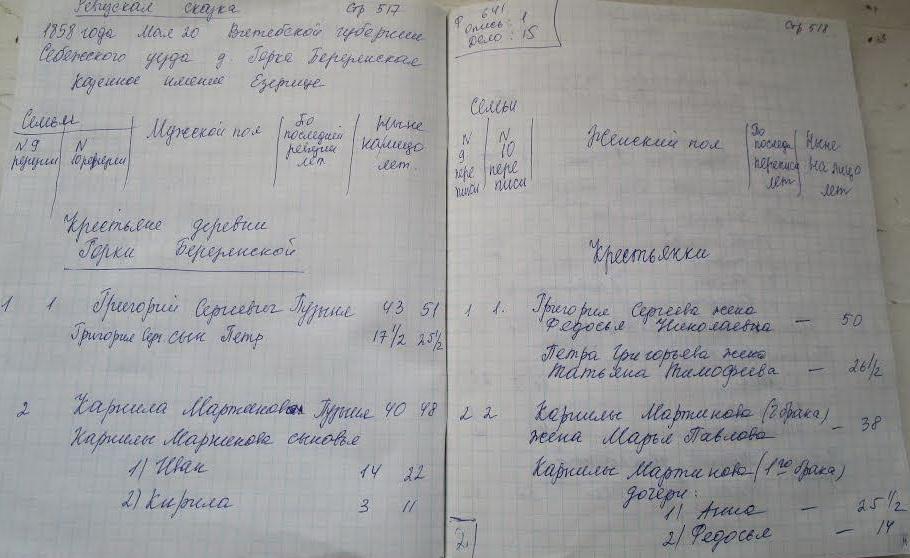 Ревизская сказка Стр 517
1858 года Мая 20 Витебской губернии
Себежского уезда д. Горка Березянская
Казенное имение Езерище
Семьи
N 9 ревизии
N 10 ревизии
Мужской пол
По последней ревизии лет
Ныне на лицо лет.
Крестьяне деревни
Горки Березянской
1 1 Григорий Сергиевич Пузыня 43 51
Григория Серг. сын Петр 17 1/2 25 1/2
2 Карнила Мартинов Пузыня 40 48
Карнилы Мартинова сыновья
1) Иван 14 22
2) Кирила 3 11
Ф 641
Опись: 1
Дело: 15
Стр 518
Семьи
N 9 пере писи
N 10 пере писи
Женский пол
По последн. переписи лет
Ныне на лицо лет
Крестьянки
1 1. Григория Сергеева жена
Федосья Николаевна — 50
Петра Григорьева жена
Татьяна Тимофеева — 26 1/2
2 2 Карнилы Мартинова (2 брака)
жена Марья Павлова — 38
Карнилы Мартинова (1го брака)
дочери:
1) Анна — 25 1/2
2) Федосья — 14
2